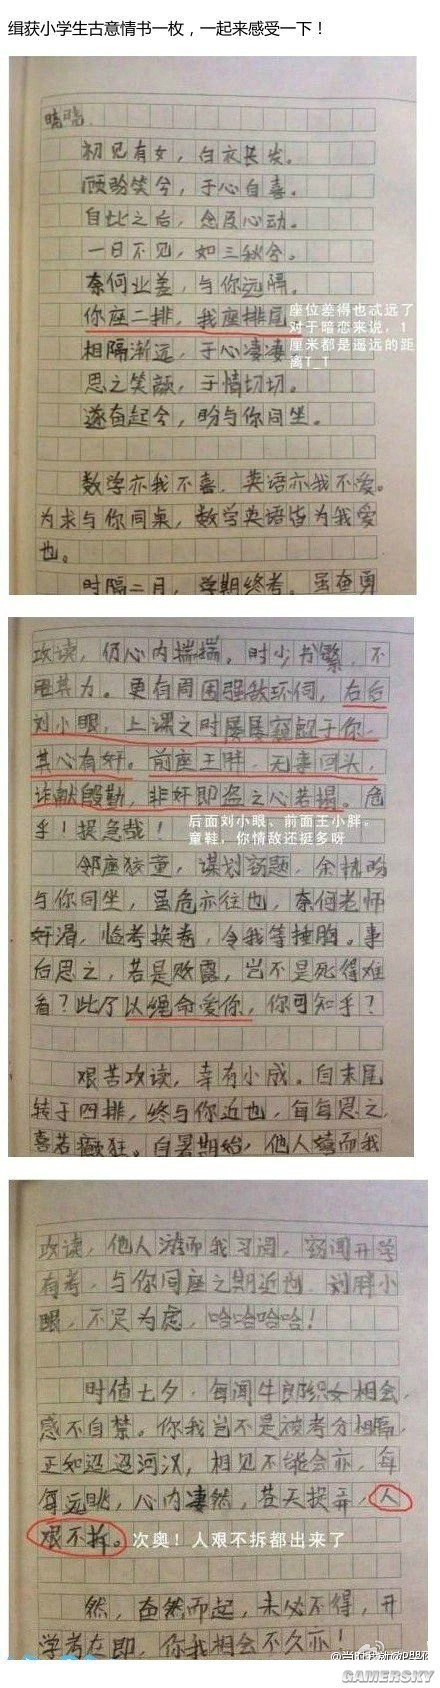 缉获小学生古意情书一枚，一起来感受一下！
晗晗.
初见有女，白衣长发。
顾盼笑兮，于心自喜。
自此之后，念及心动。
一日不见，如三秋兮。
奈何业差，与你远隔。
你座二排，我座排尾
座位差得也忒远了
对于暗恋来说，1
厘米都是遥远的距
离T_T
相隔渐远，于心凄凄
思之笑颜，于情切切。
遂奋起兮，盼与你同坐。
数学亦我不喜，英语亦我不爱。
为求与你同桌，数学英语皆为我爱
也。
时隔二月，学期终考。虽奋勇
攻读，仍心内揣揣。时少书繁，不
胜其力。更有周围强敌环伺，右后
刘小眼，上课之时屡屡窥觎于你，
其心有奸。前座王胖，无事回头，
诈献殷勤，非奸即盗之心若揭。危
乎！捉急哉！
后面刘小眼、前面王小胖。
童鞋，你情敌还挺多呀
邻座狡童，谋划窃题，余精盼
与你同坐，虽危亦往也，奈何老师
奸滑，临考换卷，令我等捶胸。事
后思之，若是败露，岂不是死得难
看？此乃以绳命爱你，你可知乎？
艰苦攻读，幸有小成。自末尾
转于四排，终与你近也，每每思之，
喜若癫狂。自暑期始，他人嬉而我
攻读，他人游而我习阅，窃闻开学
有考，与你同座之期近也，刘胖小
眼，不足为虑，哈哈哈哈！
时值七夕，每闻牛郎织女相会，
感不自禁。你我岂不是被考分相隔，
正如迢迢河汉，相见不能会亦，每
每远眺，心内凄然，苍天捉弄，人
艰不拆。
次奥！人艰不拆都出来了
然，奋然而起，未必不得，开
学考在即，你我相会不久亦！
GAMERSKY